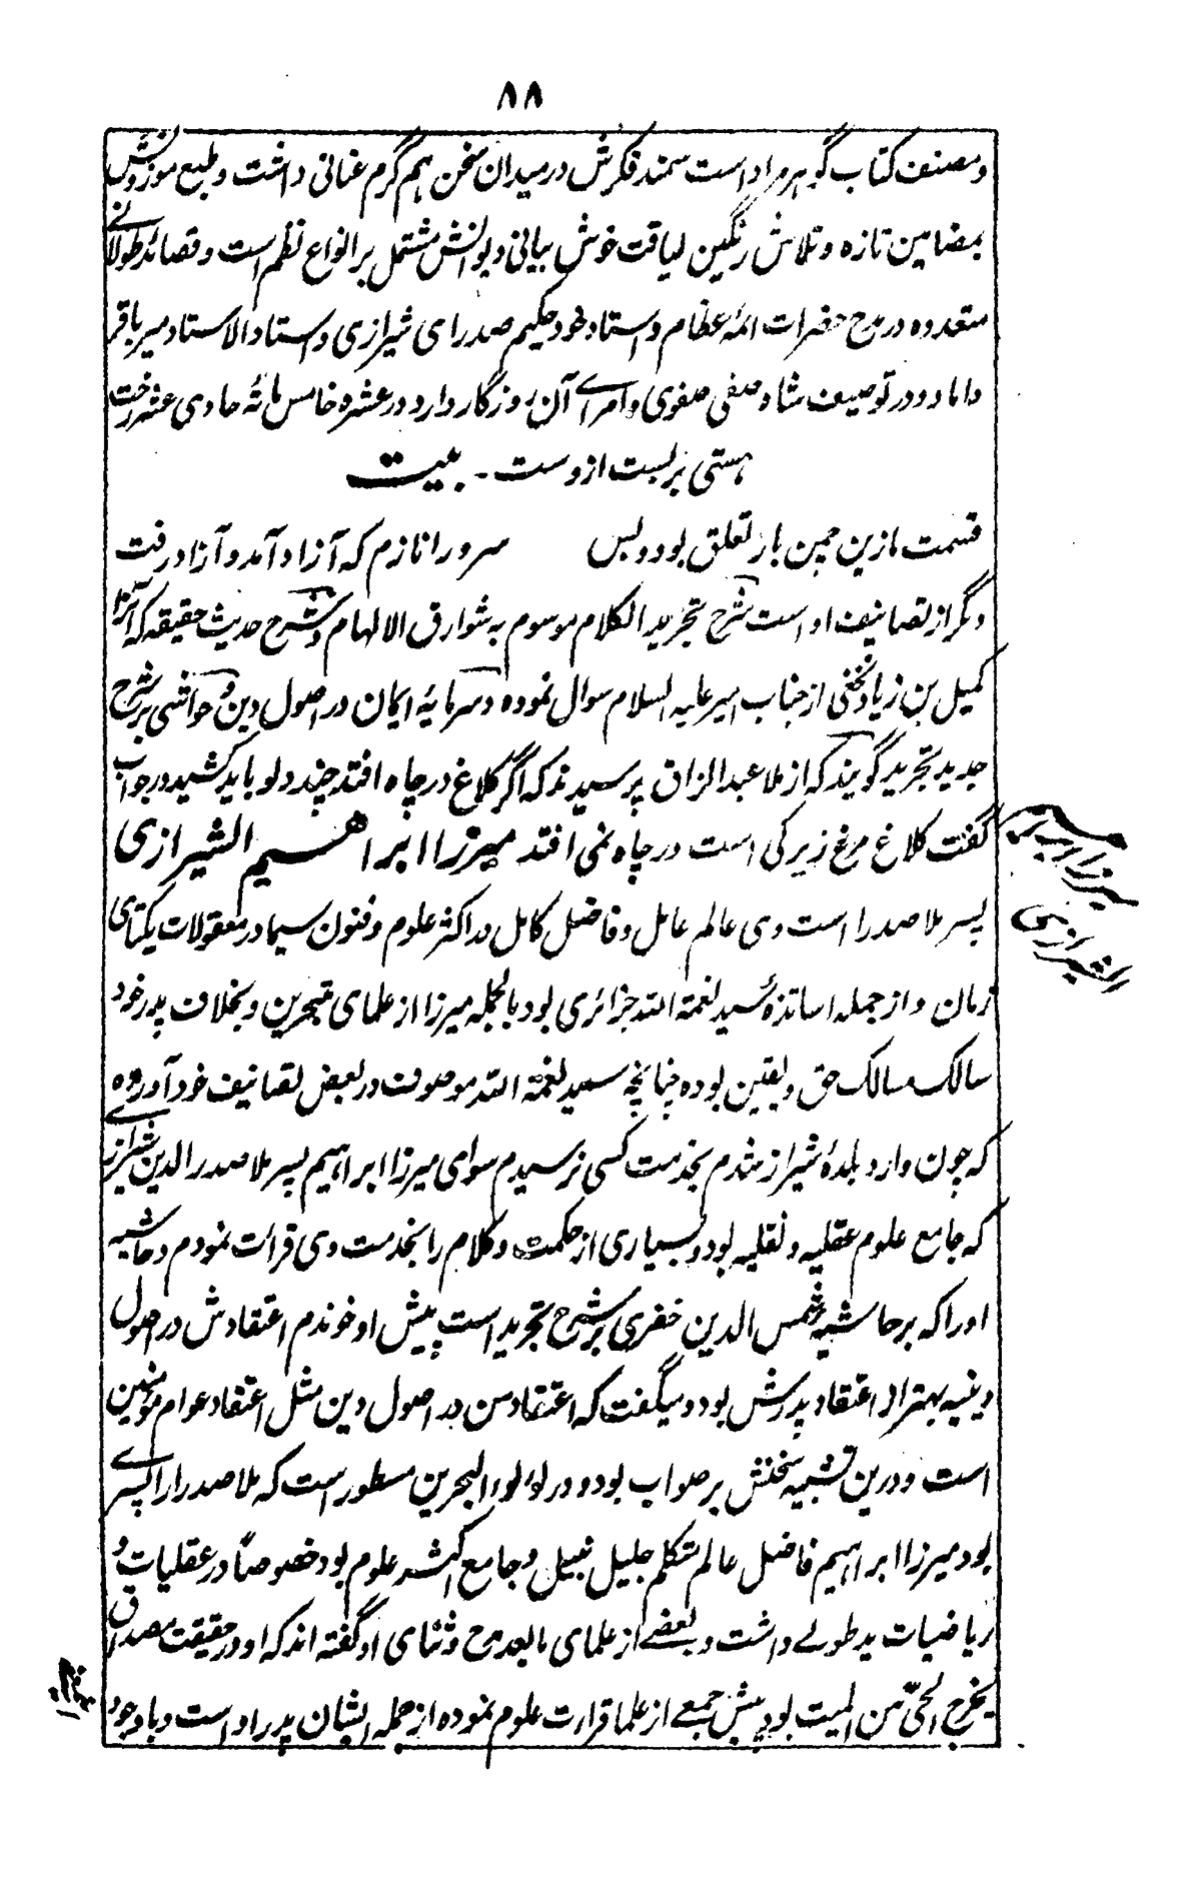 ۸۸
ومصنف کتاب گوهر مراد است سمند فکرش در میدان سخن هم گرم عنانی داشت و طبع موزونش
بمضامین تازه و تلاش رنگین لیاقت خوش بیانی دیوانش مشتمل بر انواع نظم است و قصائد طولانی
متعدده در مدح حضرات ائمۀ عظام و استاد خود حکیم صدرای شیرازی و استاد الاستاد میر باقر
داماد و در توصیف شاه صفی صفوی و امراے آن روزگار دارد در عشره خامس مائۀ حادی عشر رخت
هستی بربست ازوست - بیت
قسمت ما زین چمن بار تعلق بود و بس سرو را نازم که آزاد آمد و آزاد رفت
دگر از تصانیف اوست شرح تجرید الکلام موسوم به شوارق الالهام و شرح حدیث حقیقه که آنرا
کمیل بن زیاد نخعی از جناب امیر علیه السلام سوال نموده و سرمایۀ ایمان در اصول دین و حواشی بر شرح
جدید تجرید گویند که از ملا عبدالرزاق پرسیدند که اگر کلاغ در چاه افتد چند دلو باید کشید در جواب
گفت کلاغ مرغ زیرکی است در چاه نمی افتد میرزا ابراهیم الشیرازی
میرزا ابراهیم
الشیرازی
پسر ملا صدرا است وی عالم عامل و فاضل کامل در اکثر علوم و فنون سیما در معقولات یکتای
زمان و از جمله اساتذۀ سید نعمة الله جزائری بود بالجمله میرزا از علمای متبحرین و بخلاف پدر خود
سالک مسالک حق و یقین بوده چنانچه سید نعمة الله موصوف در بعض تصانیف خود آورده
که چون وارد بلدۀ شیراز شدم بخدمت کسی نرسیدم سوای میرزا ابراهیم پسر ملا صدرالدین شیرازے
که جامع علوم عقلیه و نقلیه بود و بسیاری از حکمت و کلام را بخدمت وی قرائت نمودم و حاشیه
او را که بر حاشیه شمس الدین خفری بر شرح تجرید است پیش او خوندم اعتقادش در اصول
دینیه بهتر از اعتقاد پدرش بود و میگفت که اعتقاد من در اصول دین مثل اعتقاد عوام مومنین
است و درین تشبیه سخنش بر صواب بود و در لؤلوء البحرین مسطور است که ملا صدرا را پسرے
بود میرزا ابراهیم فاضل عالم متکلم جلیل نبیل و جامع اکثر علوم بود خصوصاً در عقلیات و
ریاضیات ید طولے داشت و بعضے از علمای ما بعد مدح و ثنای او گفته اند که او در حقیقت مصداق
یخرج الحیّ من المیت بود پیش جمعے از علما قرارت علوم نموده از جمله ایشان پدر او است و با وجود